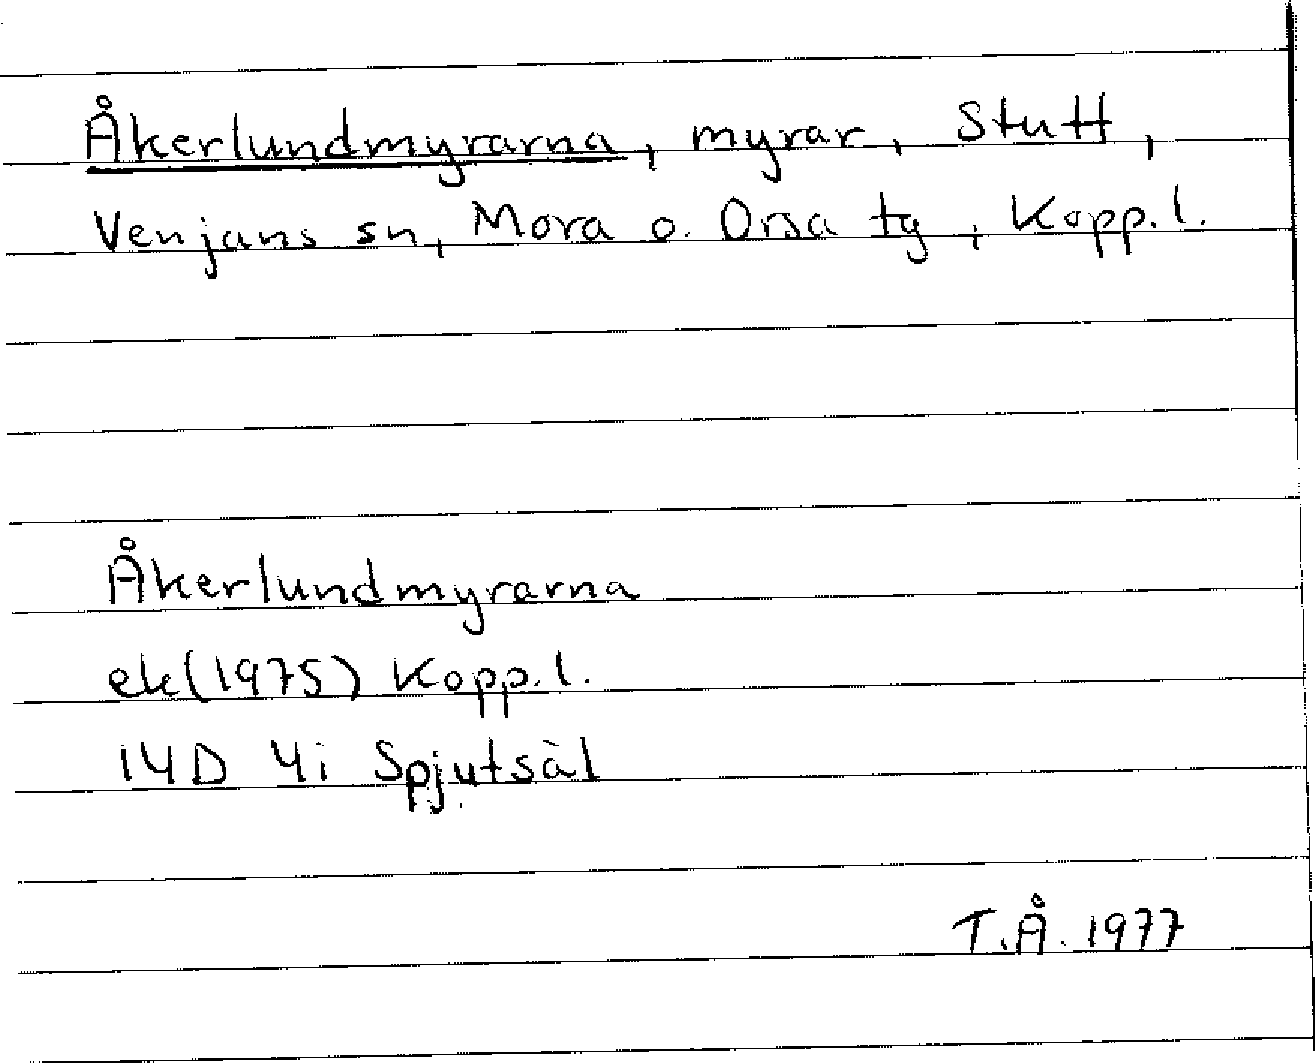 Åkerlundmyrarna, myrar, Stutt,
Venjans sn, Mora o. Orsa tg, Kopp. l.
Åkerlundmyrarna
ek (1975) Kopp. l.
14D 4i Spjutsäl
T.Å. 1977